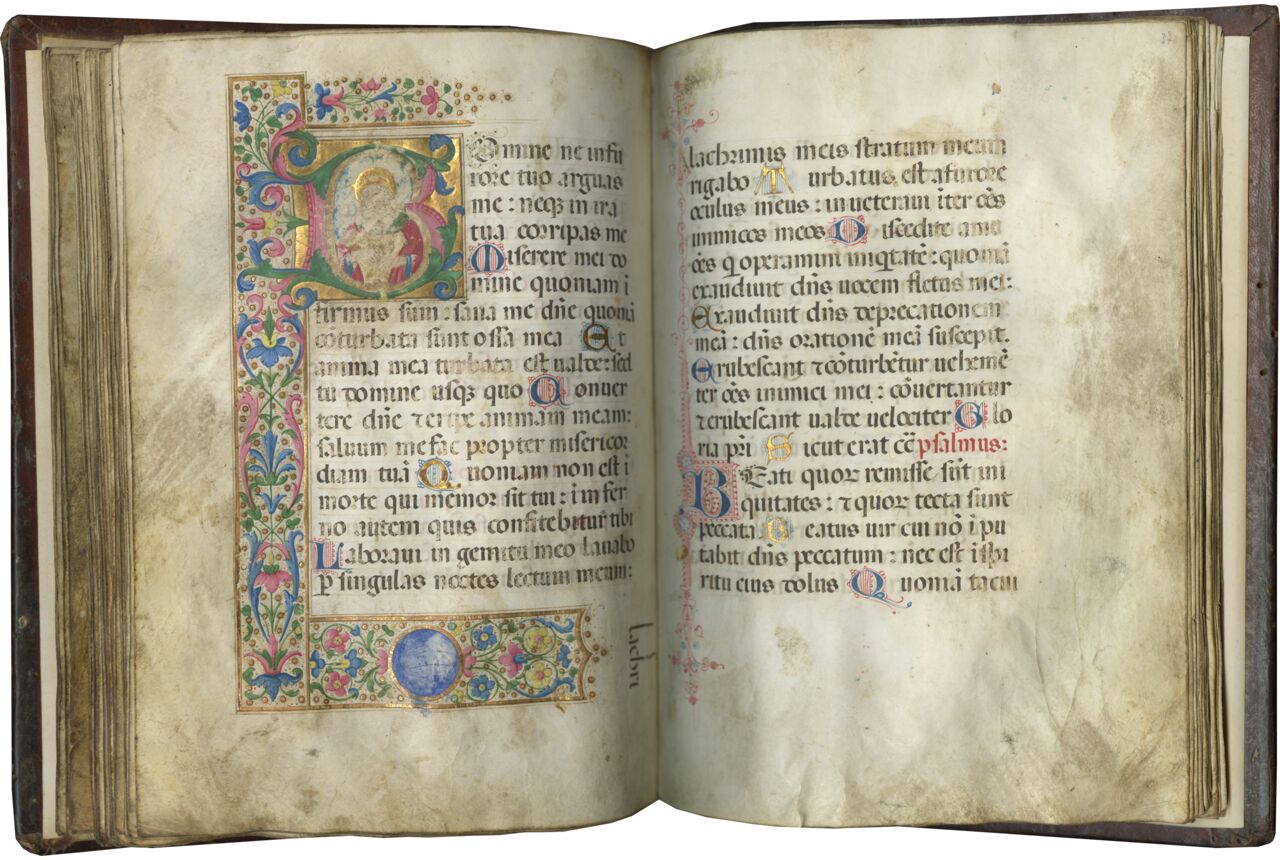 Domine ne in fu
rore tuo arguas
me : neq; in ira
tua corripas me
Miserere mei do
mine quoniam i
firmus sum : sana me dñe quoniã
cõturbata sunt ossa mea Et
anima mea turbata est ualde : sed
tu domine usque quo Conuer
tere dñe ⁊ eripe animam meam :
saluum me fac propter misericor
diam tuã Quoniam non est i
morte qui memor sit tui : i infer
no autem quis confitebitur tibi
Laboraui in gemitu meo lauabo
ꝑ singulas noctes lectum meum :
lachri
37
lachrimis meis stratum meum
rigabo Turbatus est a furore
oculus meus : inueteraui iter oẽs
inimicos meos Discedite a me
oẽs q̃ operamini iniq̃tatẽ : quoniã
exaudiuit dñs uocem fletus mei :
Exaudiuit dñs deprecationem
meã : dñs orationẽ meã suscepit.
Erubescant ⁊ cõturbẽtur uehemẽ
ter oẽs inimici mei : cõuertantur
⁊ erubescant ualde uelociter Glo
ria pr̃i Sicut erat cẽ psalmus :
BEati quoꝝ remisse sũt ini
quitates : ⁊ quoꝝ tecta sunt
peccata Beatus uir cui nõ ipu
tabit dñs peccatum : nec est i spi
ritu eius dolus Quoniã tacui